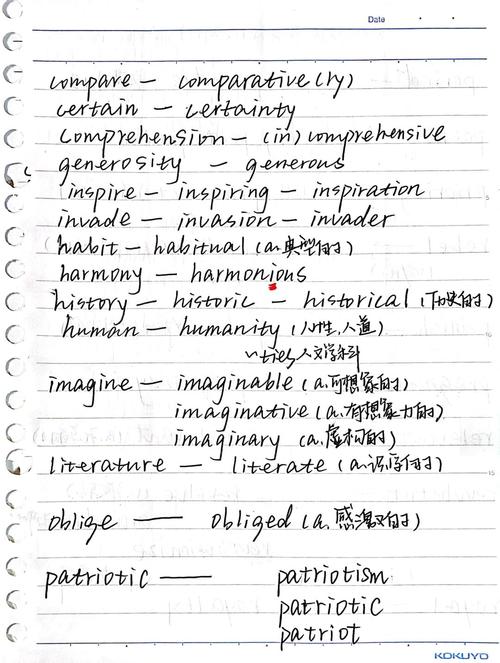 Date
compare — comparative(ly)
certain — certainty
comprehension — (in)comprehensive
generosity — generous
inspire — inspiring — inspiration
invade — invasion — invader
habit — habitual (a.典型的)
harmony — harmonious
history — historic — historical (历史的)
human — humanity (人性,人道)
~ties 人文学科
imagine — imaginable (a.可想象的)
imaginative (a.有想象力的)
imaginary (a.虚构的)
literature — literate (a.识字的)
oblige — obliged (a.感激的)
patriotic — patriotism
patriotic
patriot
KOKUYO